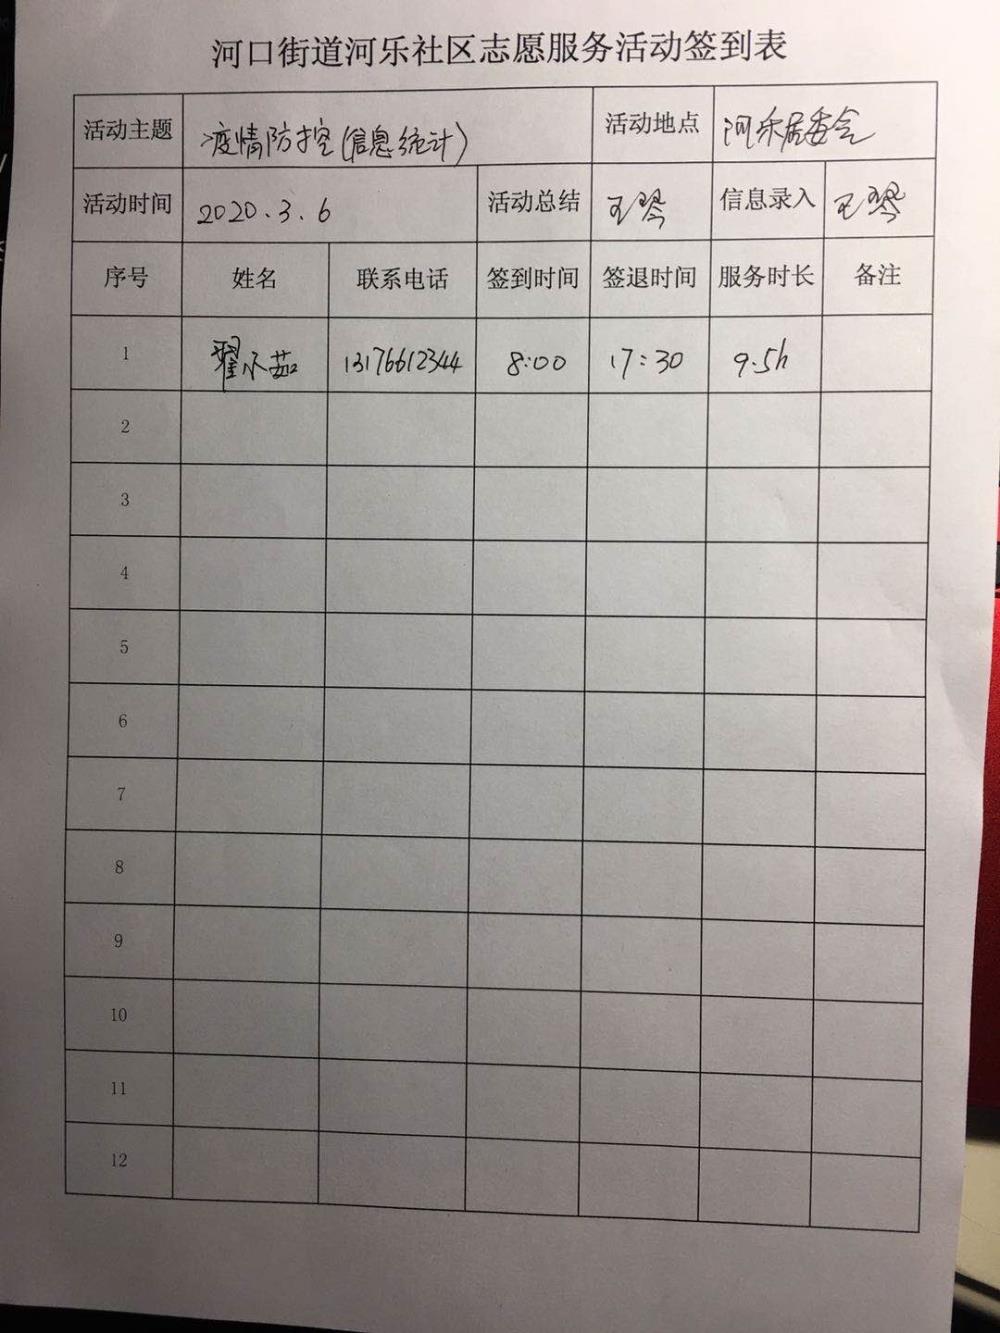 河口街道河乐社区志愿服务活动签到表
活动主题 疫情防控(信息统计) 活动地点 河乐居委会
活动时间 2020.3.6 活动总结 王琴 信息录入 王琴
序号 姓名 联系电话 签到时间 签退时间 服务时长 备注
1 翟小茹 13176612344 8:00 17:30 9.5h
2
3
4
5
6
7
8
9
10
11
12